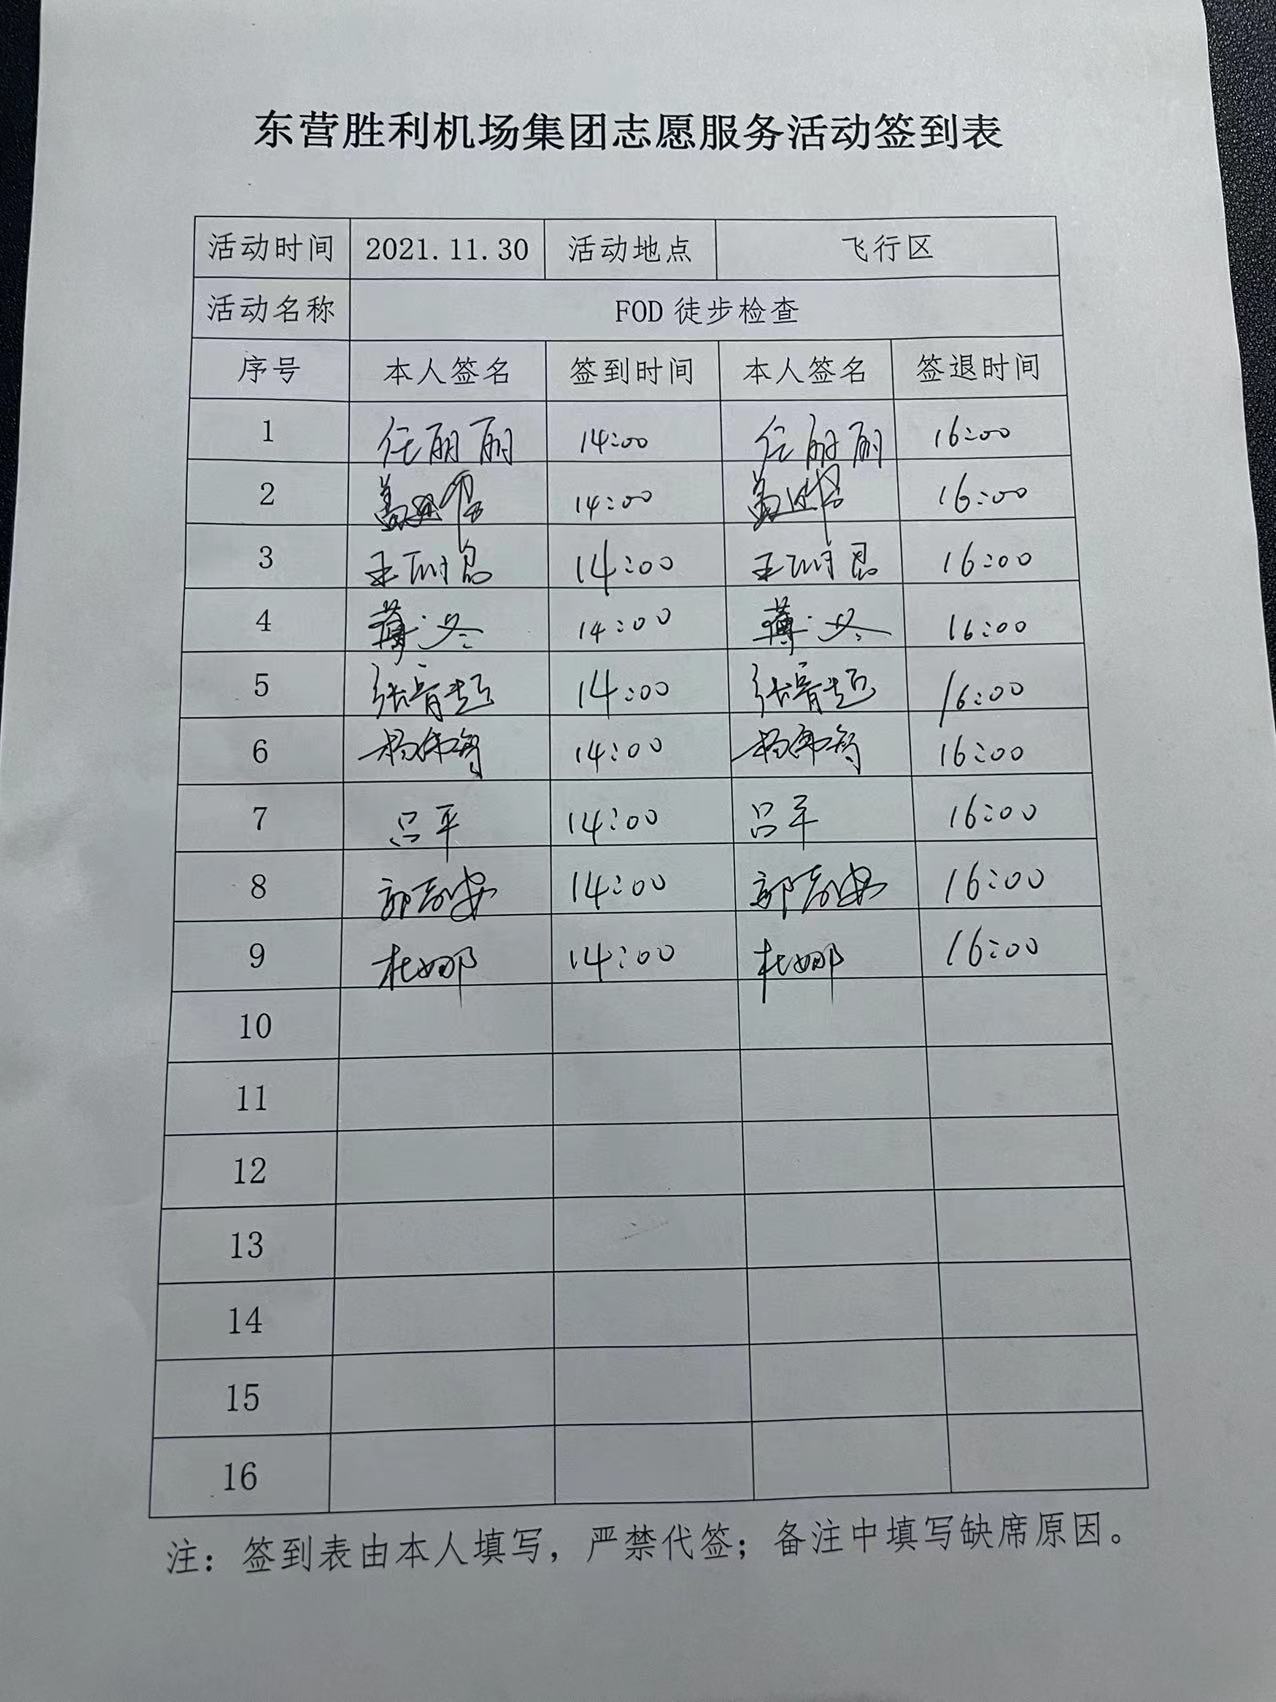 东营胜利机场集团志愿服务活动签到表
活动时间 2021.11.30 活动地点 飞行区
活动名称 FOD徒步检查
序号 本人签名 签到时间 本人签名 签退时间
1 任丽丽 14:00 任丽丽 16:00
2 14:00 16:00
3 14:00 16:00
4 薄冬 14:00 薄冬 16:00
5 14:00 16:00
6 14:00 16:00
7 吕平 14:00 吕平 16:00
8 14:00 16:00
9 杜娜 14:00 杜娜 16:00
10
11
12
13
14
15
16
注：签到表由本人填写，严禁代签；备注中填写缺席原因。